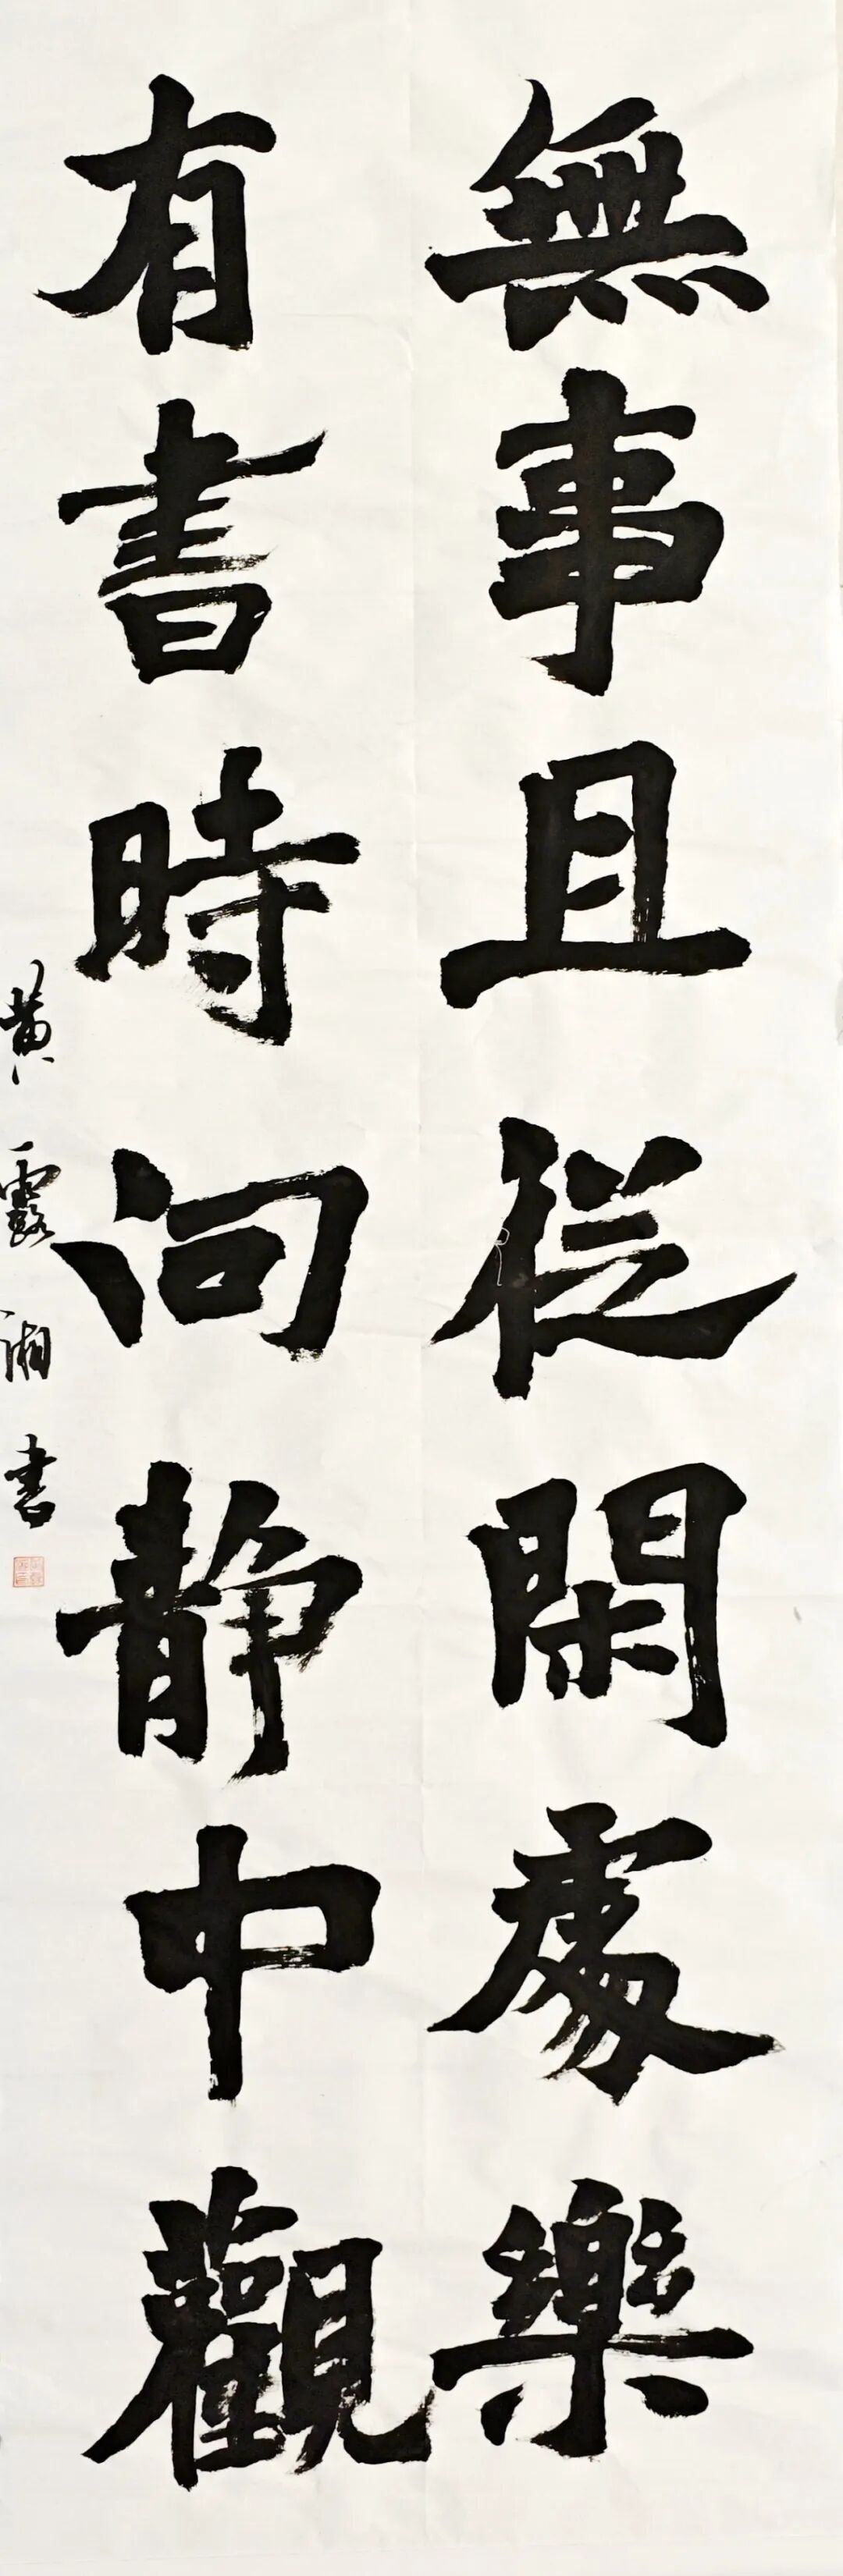 無事且從閑處樂
有書時向静中觀
黄露湘书